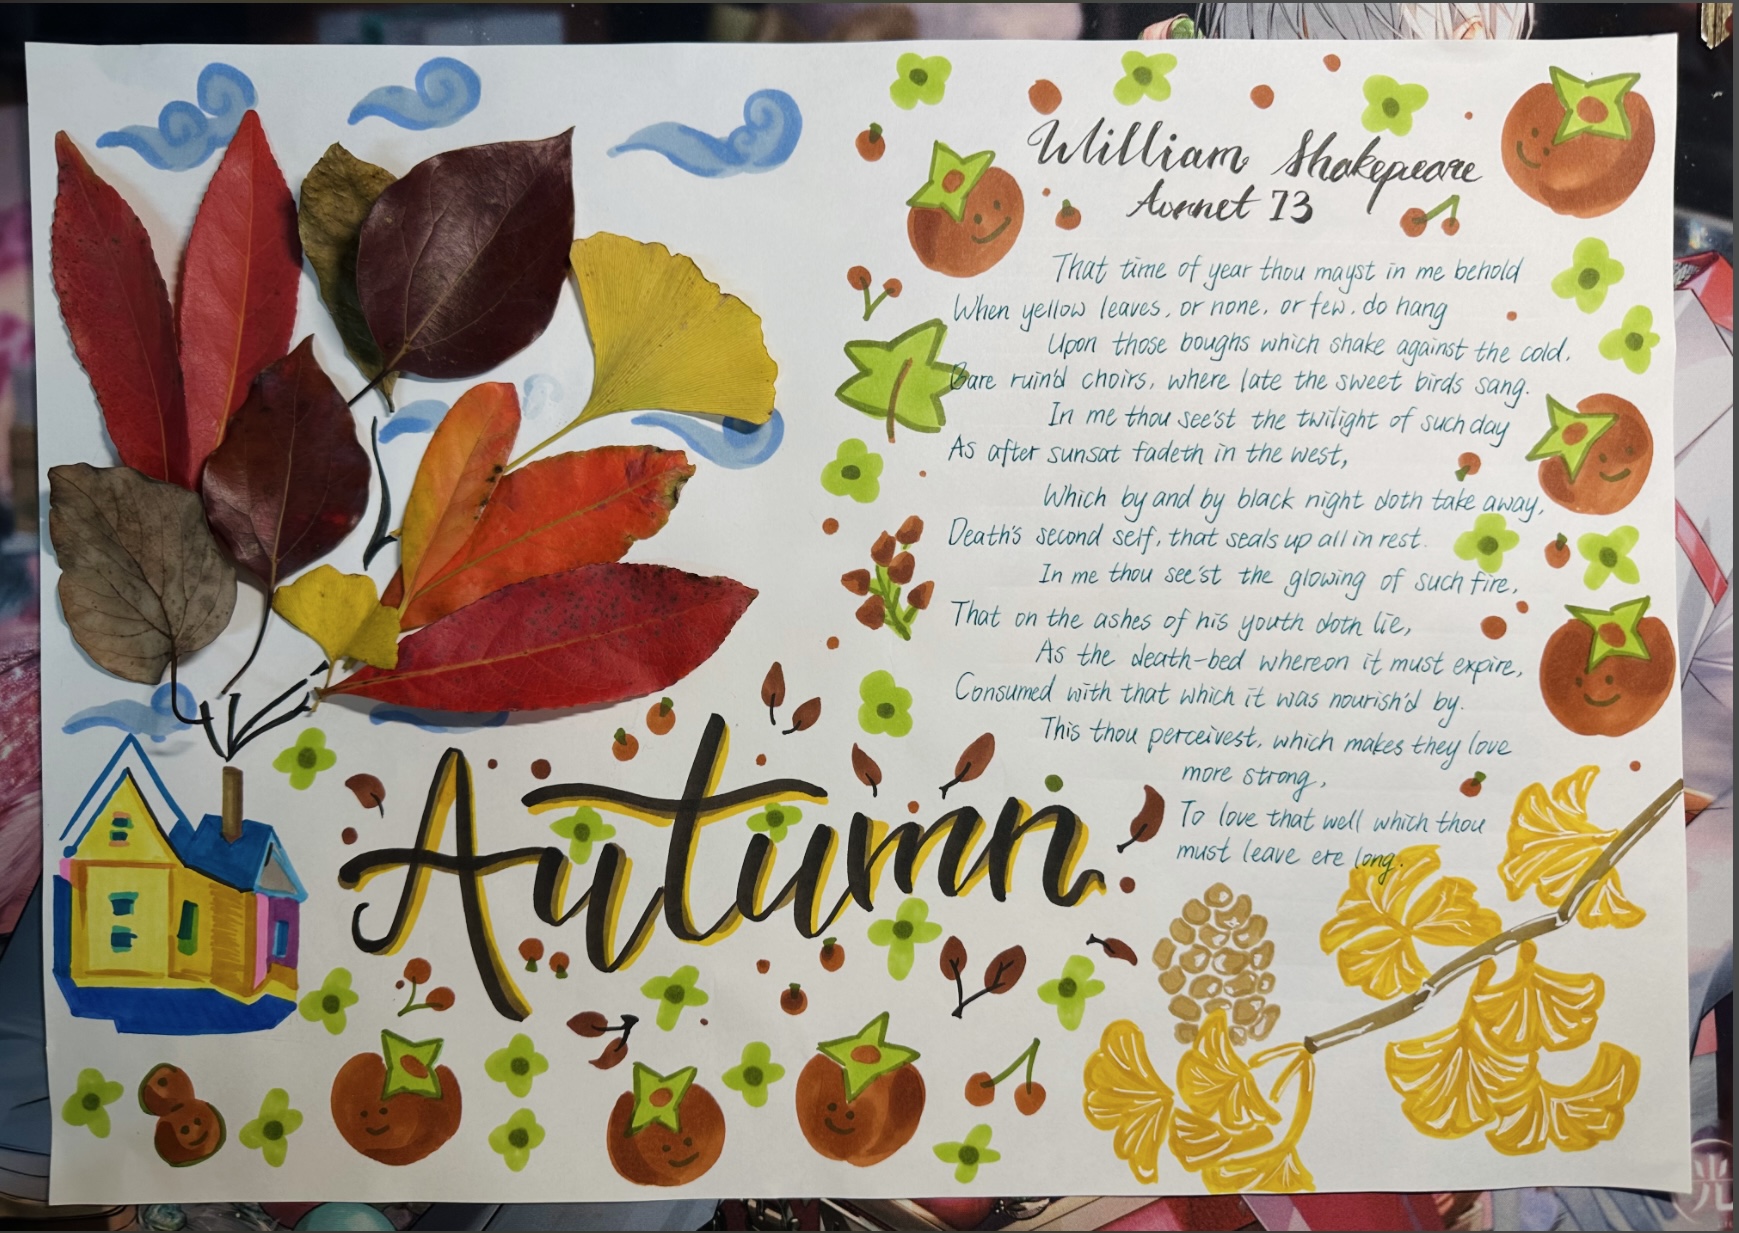 William Shakepeare
Aonnet 73
That time of year thou mayst in me behold
When yellow leaves, or none, or few, do hang
Upon those boughs which shake against the cold,
Bare ruin'd choirs, where late the sweet birds sang.
In me thou see'st the twilight of such day
As after sunsat fadeth in the west,
Which by and by black night doth take away,
Death's second self, that seals up all in rest.
In me thou see'st the glowing of such fire,
That on the ashes of his youth doth lie,
As the death-bed whereon it must expire,
Consumed with that which it was nourish'd by.
This thou perceivest, which makes they love
more strong,
To love that well which thou
must leave ere long.
Autumn
光